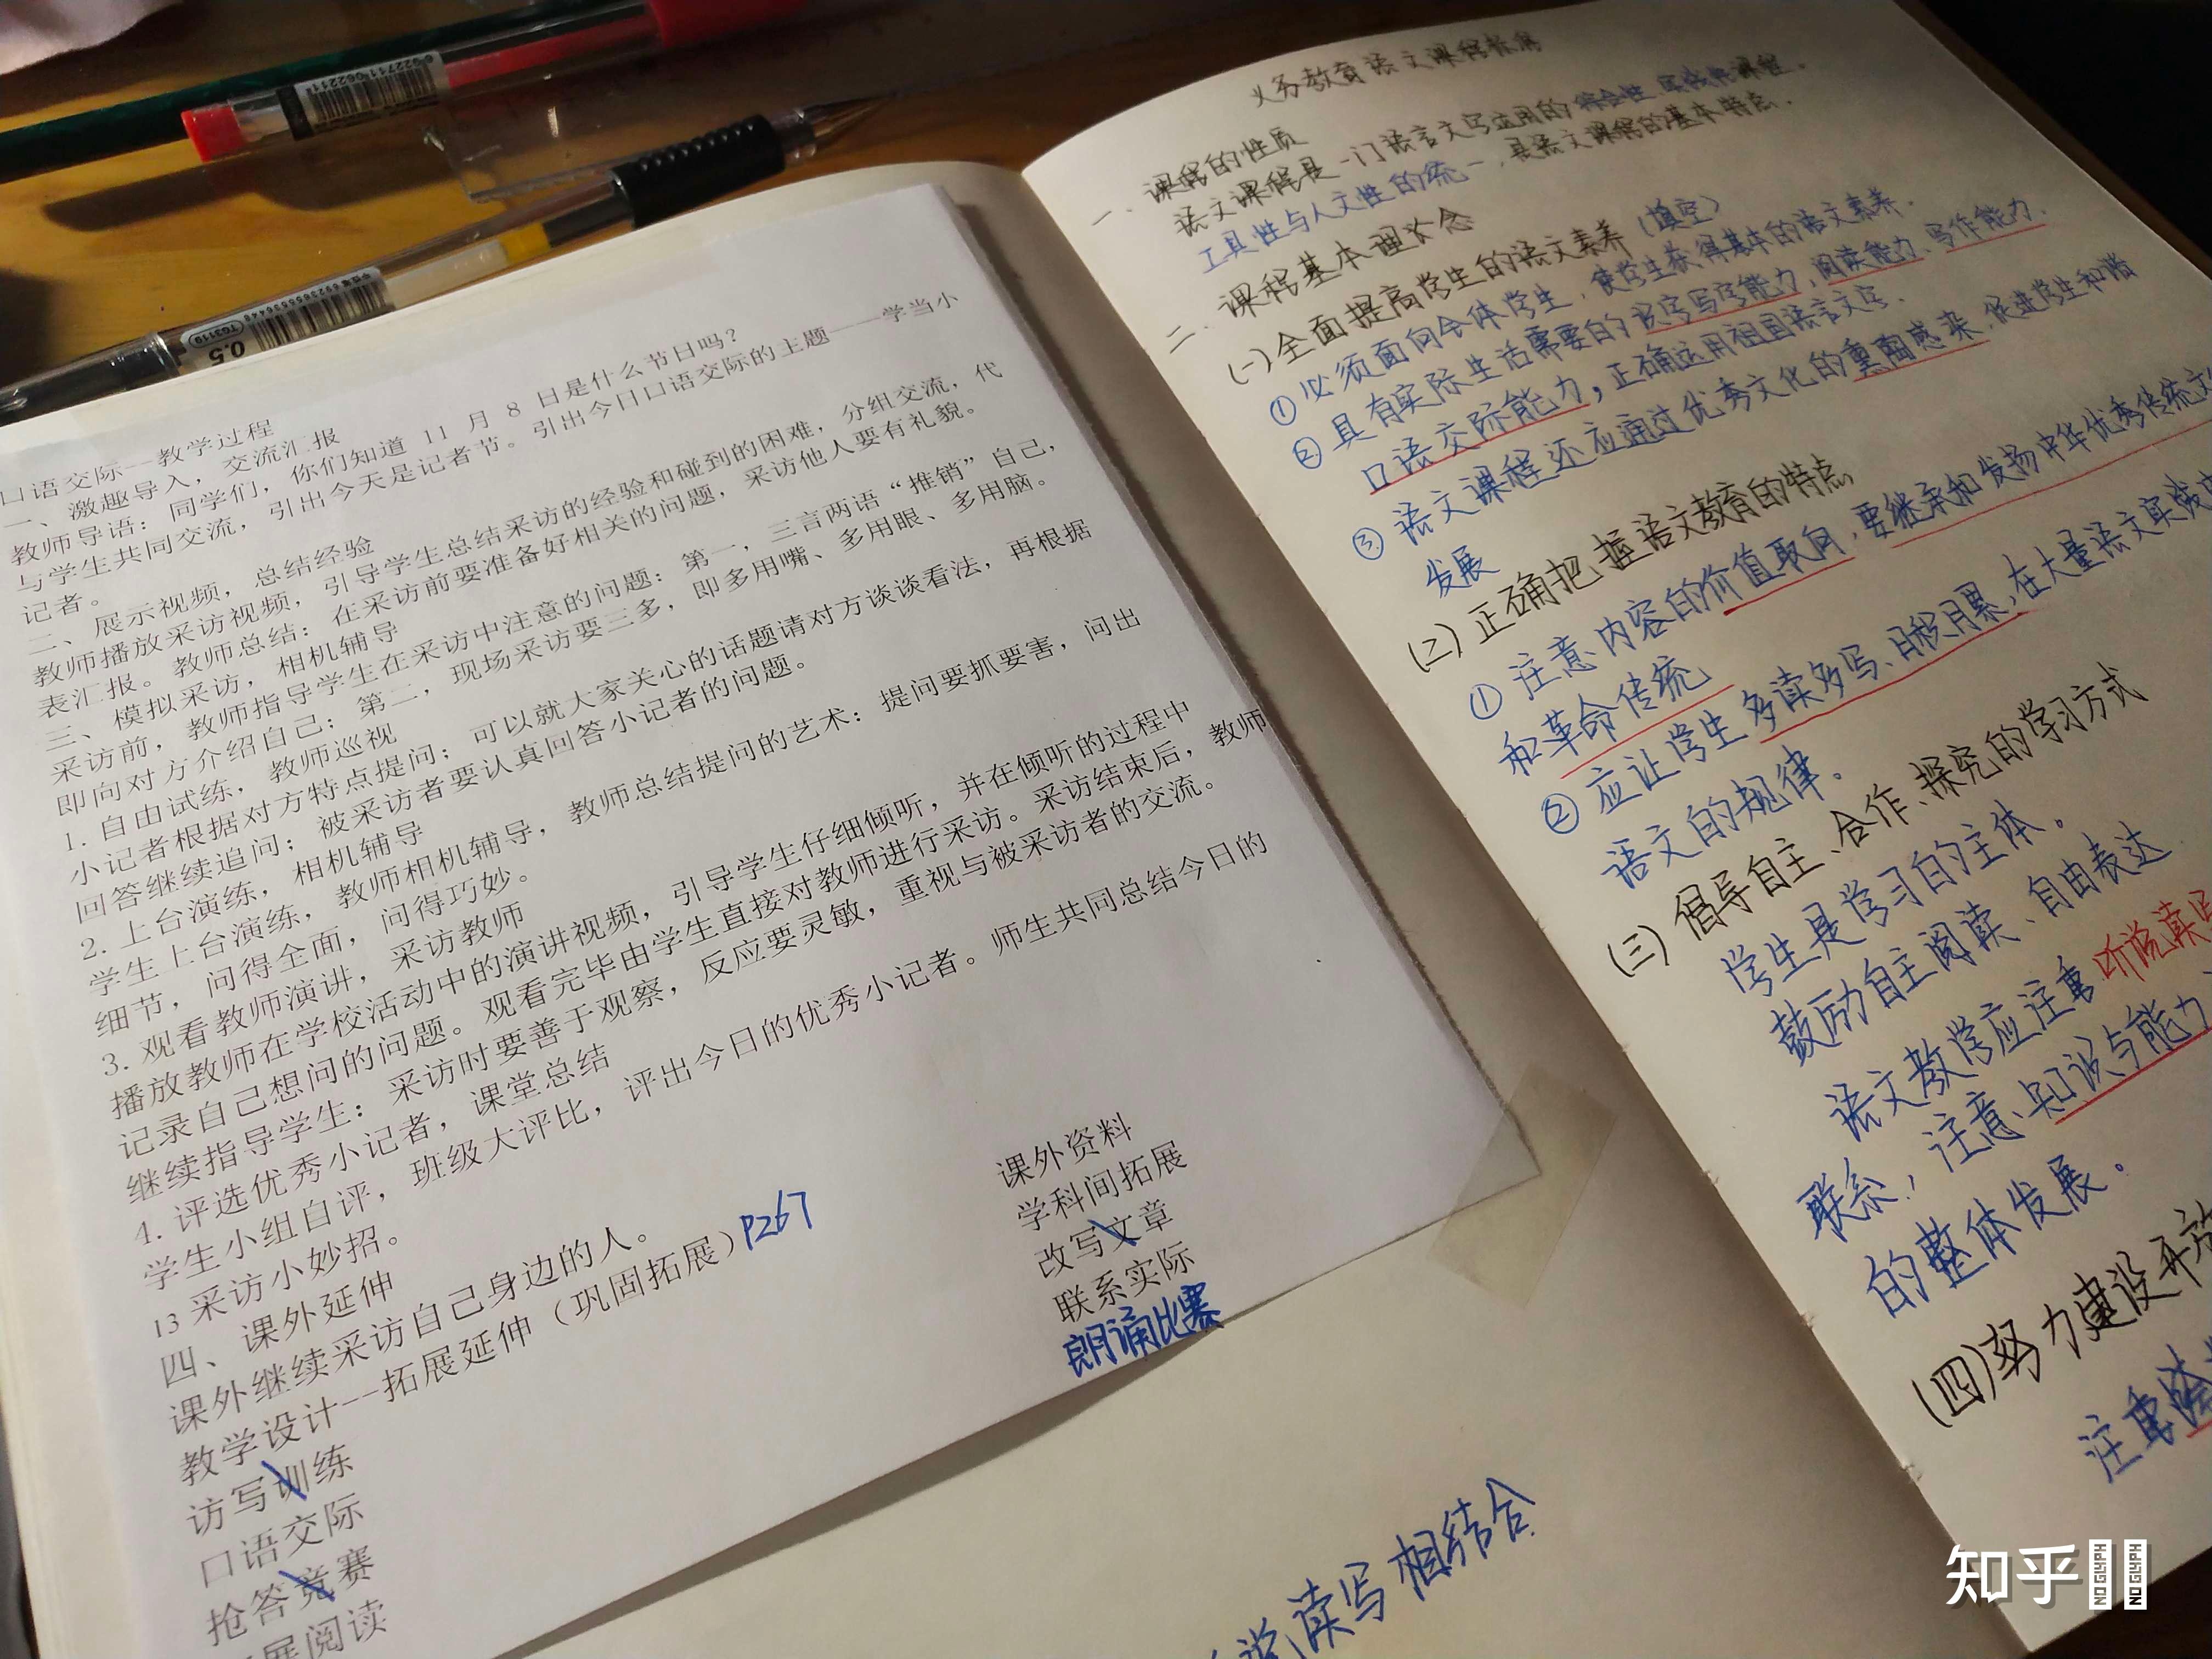 口语交际--教学过程
一、激趣导入，交流汇报
教师导语：同学们，你们知道 11 月 8 日是什么节日吗？
与学生共同交流，引出今天是记者节。引出今日口语交际的主题——学当小
记者。
二、展示视频，总结经验
教师播放采访视频，引导学生总结采访的经验和碰到的困难，分组交流，代
表汇报。教师总结：在采访前要准备好相关的问题，采访他人要有礼貌。
三、模拟采访，相机辅导
采访前，教师指导学生在采访中注意的问题：第一，三言两语“推销”自己，
即向对方介绍自己；第二，现场采访要三多，即多用嘴、多用眼、多用脑。
1. 自由试练，教师巡视
小记者根据对方特点提问；可以就大家关心的话题请对方谈谈看法，再根据
回答继续追问；被采访者要认真回答小记者的问题。
2. 上台演练，相机辅导
学生上台演练，教师相机辅导，教师总结提问的艺术：提问要抓要害，问出
细节，问得全面，问得巧妙。
3. 观看教师演讲，采访教师
播放教师在学校活动中的演讲视频，引导学生仔细倾听，并在倾听的过程中
记录自己想问的问题。观看完毕由学生直接对教师进行采访。采访结束后，教师
继续指导学生：采访时要善于观察，反应要灵敏，重视与被采访者的交流。
4. 评选优秀小记者，课堂总结
学生小组自评，班级大评比，评出今日的优秀小记者。师生共同总结今日的
13 采访小妙招。
四、课外延伸
课外继续采访自己身边的人。
教学设计--拓展延伸（巩固拓展）P267
访写训练
口语交际
抢答竞赛
展阅读
课外资料
学科间拓展
改写文章
联系实际
朗诵比赛
读写相结合
义务教育语文课程标准
一、课程的性质
语文课程是一门语言文字运用的综合性、实践性课程。
工具性与人文性的统一，是语文课程的基本特点。
二、课程基本理念
(一)全面提高学生的语文素养（填空）
①必须面向全体学生，使学生获得基本的语文素养。
②具有实际生活需要的识字写字能力、阅读能力、写作能力、
口语交际能力，正确运用祖国语言文字。
③语文课程还应通过优秀文化的熏陶感染，促进学生和谐
发展
(二)正确把握语文教育的特点
①注意内容的价值取向，要继承和发扬中华优秀传统文
和革命传统
②应让学生多读多写、日积月累，在大量语文实践
语文的规律。
(三)倡导自主、合作、探究的学习方式
学生是学习的主体。
鼓励自主阅读、自由表达
语文教学应注重听说读写
联系，注意知识与能力、
的整体发展。
(四)努力建设开放
注重跨
6922711062211
TG3119
0.5
知乎